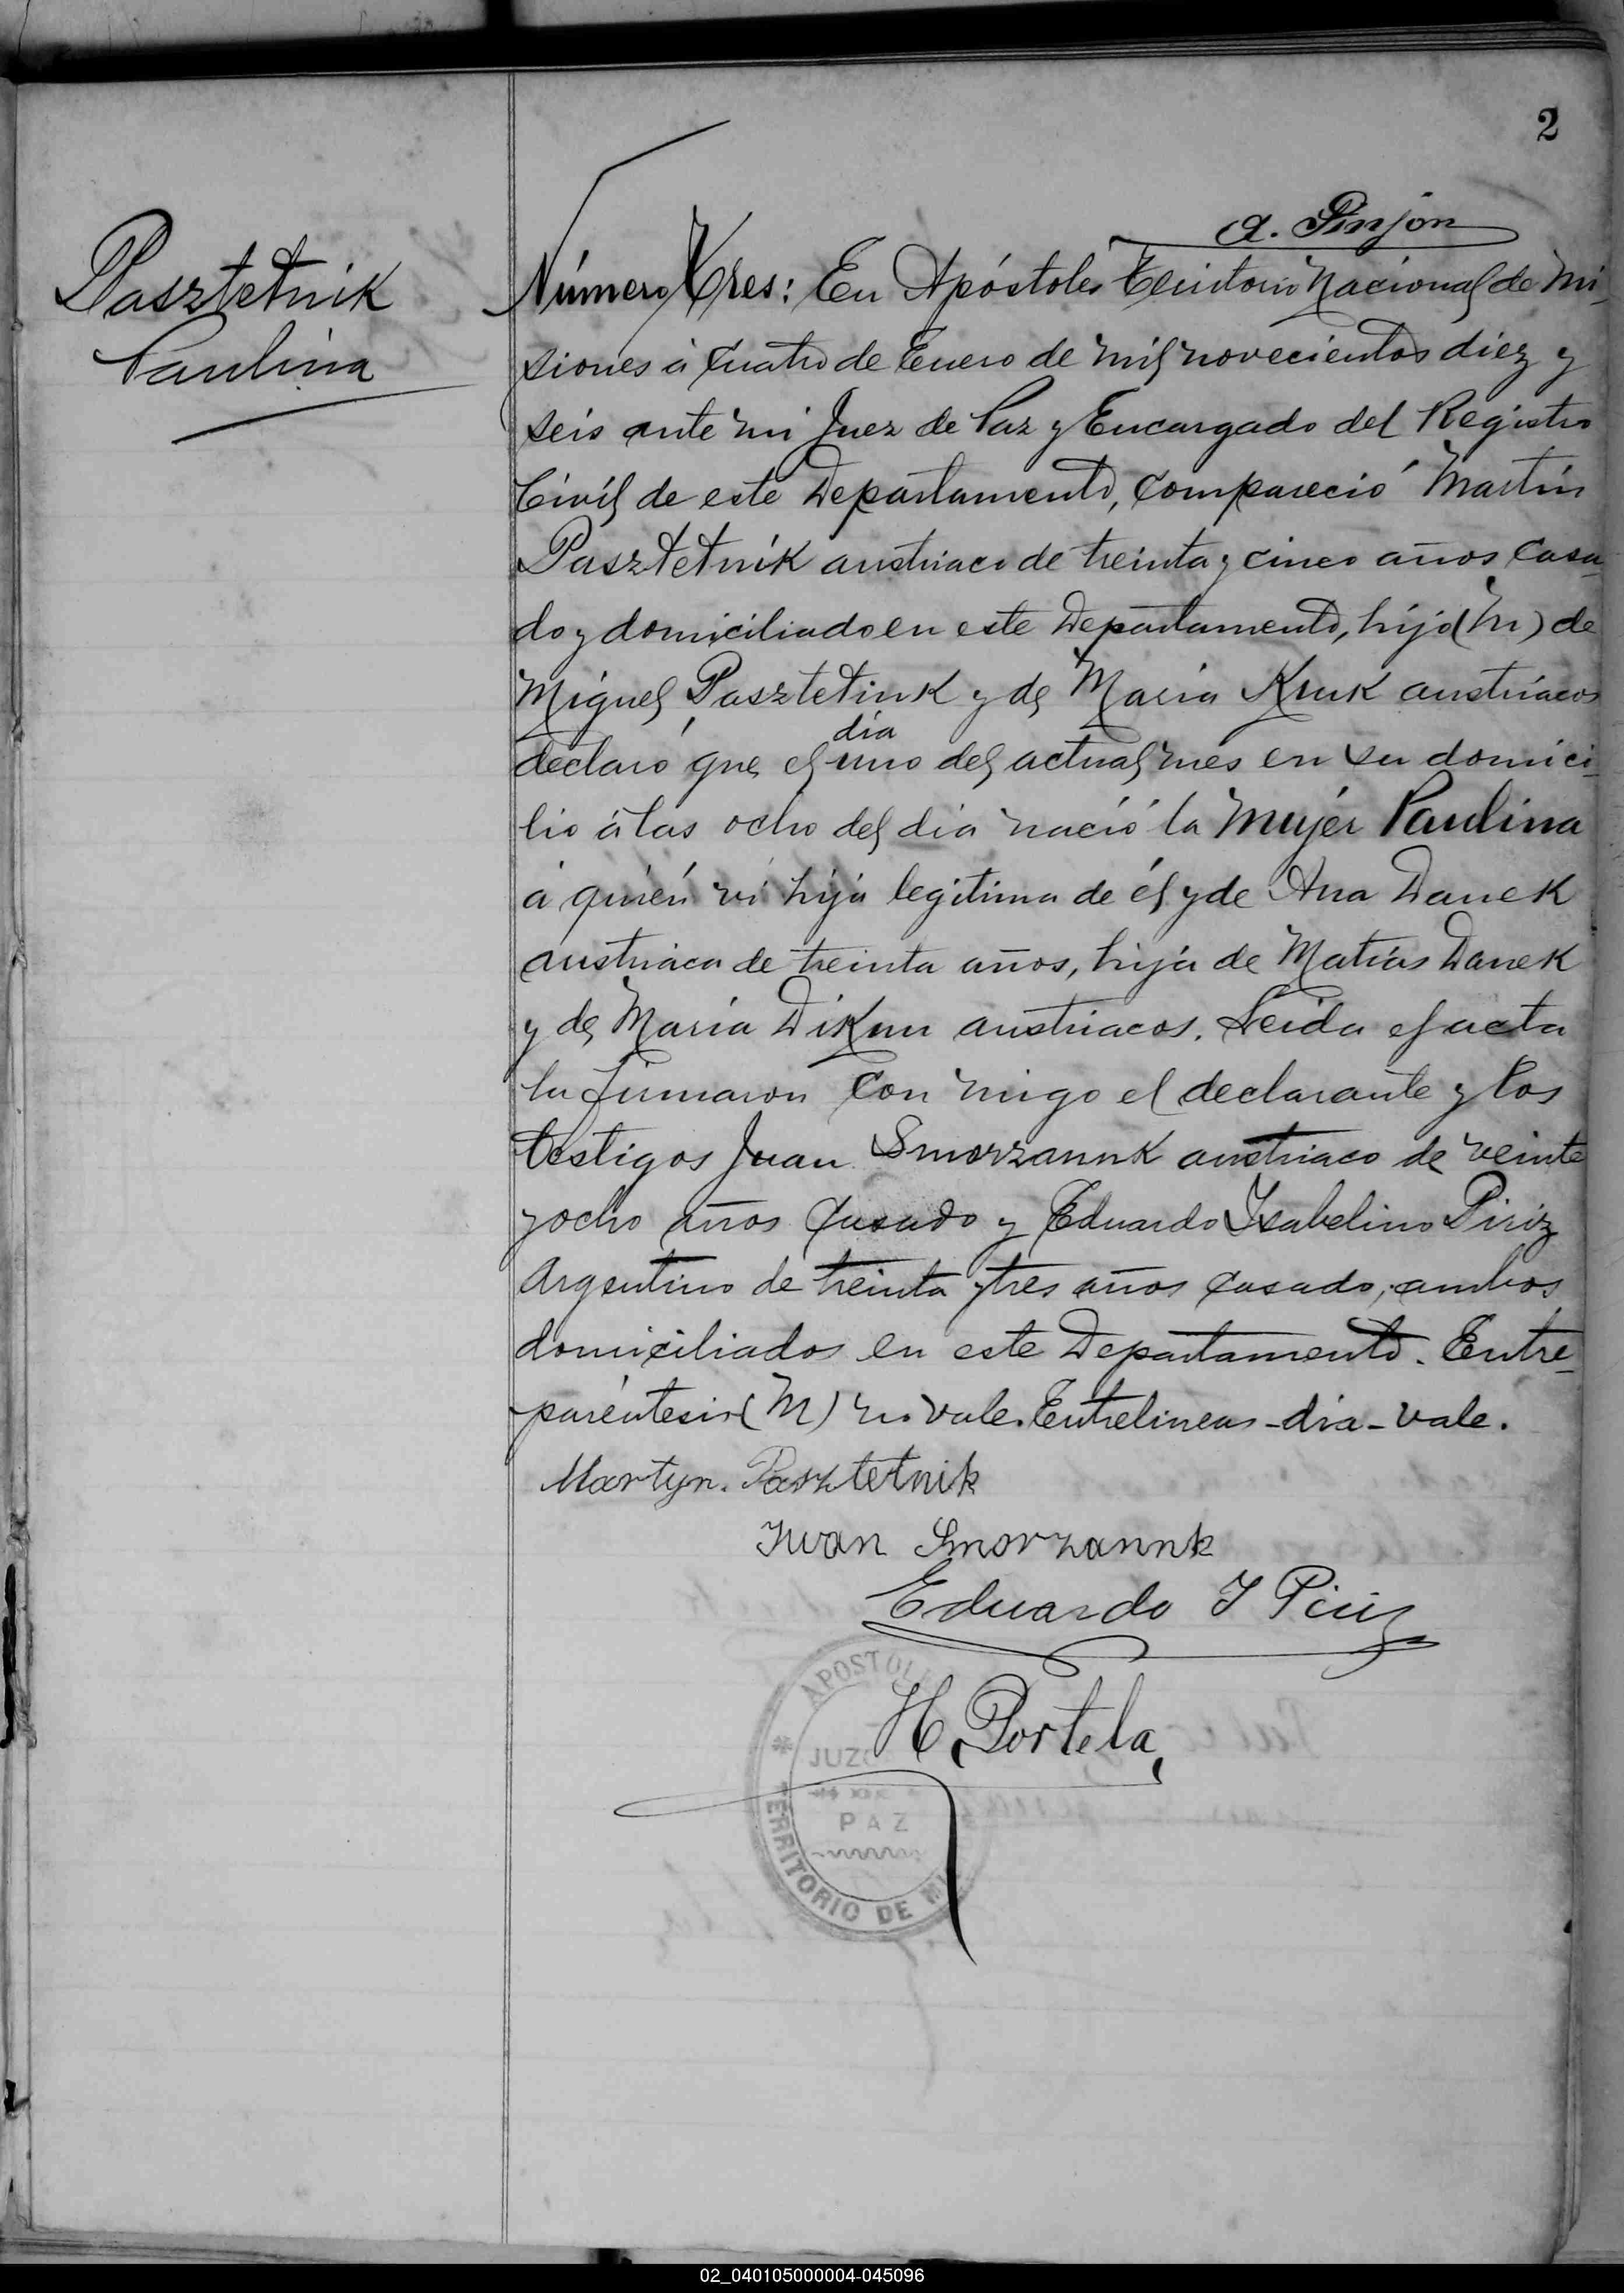 2
A. Pinjon
Pasztetnik
Paulina
Número Tres: En Apóstoles Territorio Nacional de Mi-
siones á cuatro de Enero de mil novecientos diez y
seis ante mi Juez de Paz y Encargado del Registro
Civil de este Departamento, compareció Martin
Pasztetnik austriaco de treinta y cinco años casa-
do y domiciliado en este Departamento, hijo (M) de
Miguel Pasztetink y de Maria Kruk austriacos
dia
declaró que el uno del actual mes en su domici-
lio á las ocho del dia nació la mujer Paulina
á quién ví hija legitima de él y de Ana Danek
austriaca de treinta años, hija de Matias Danek
y de Maria Dikun austriacos. Leida el acta
la firmaron con migo el declarante y los
testigos Juan Smorzannk austriaco de veinte
y ocho años casado y Eduardo Isabelino Piriz
Argentino de treinta y tres años casado, ambos
domiciliados en este Departamento. Entre-
paréntesis (M) no vale. Entrelineas - dia - vale.
Martyn. Pasztetnik
Iwan Smorzannk
Eduardo I Piriz
H. Portela
APOSTOLE
JUZ
PAZ
TERRITORIO DE MI
02_040105000004-045096